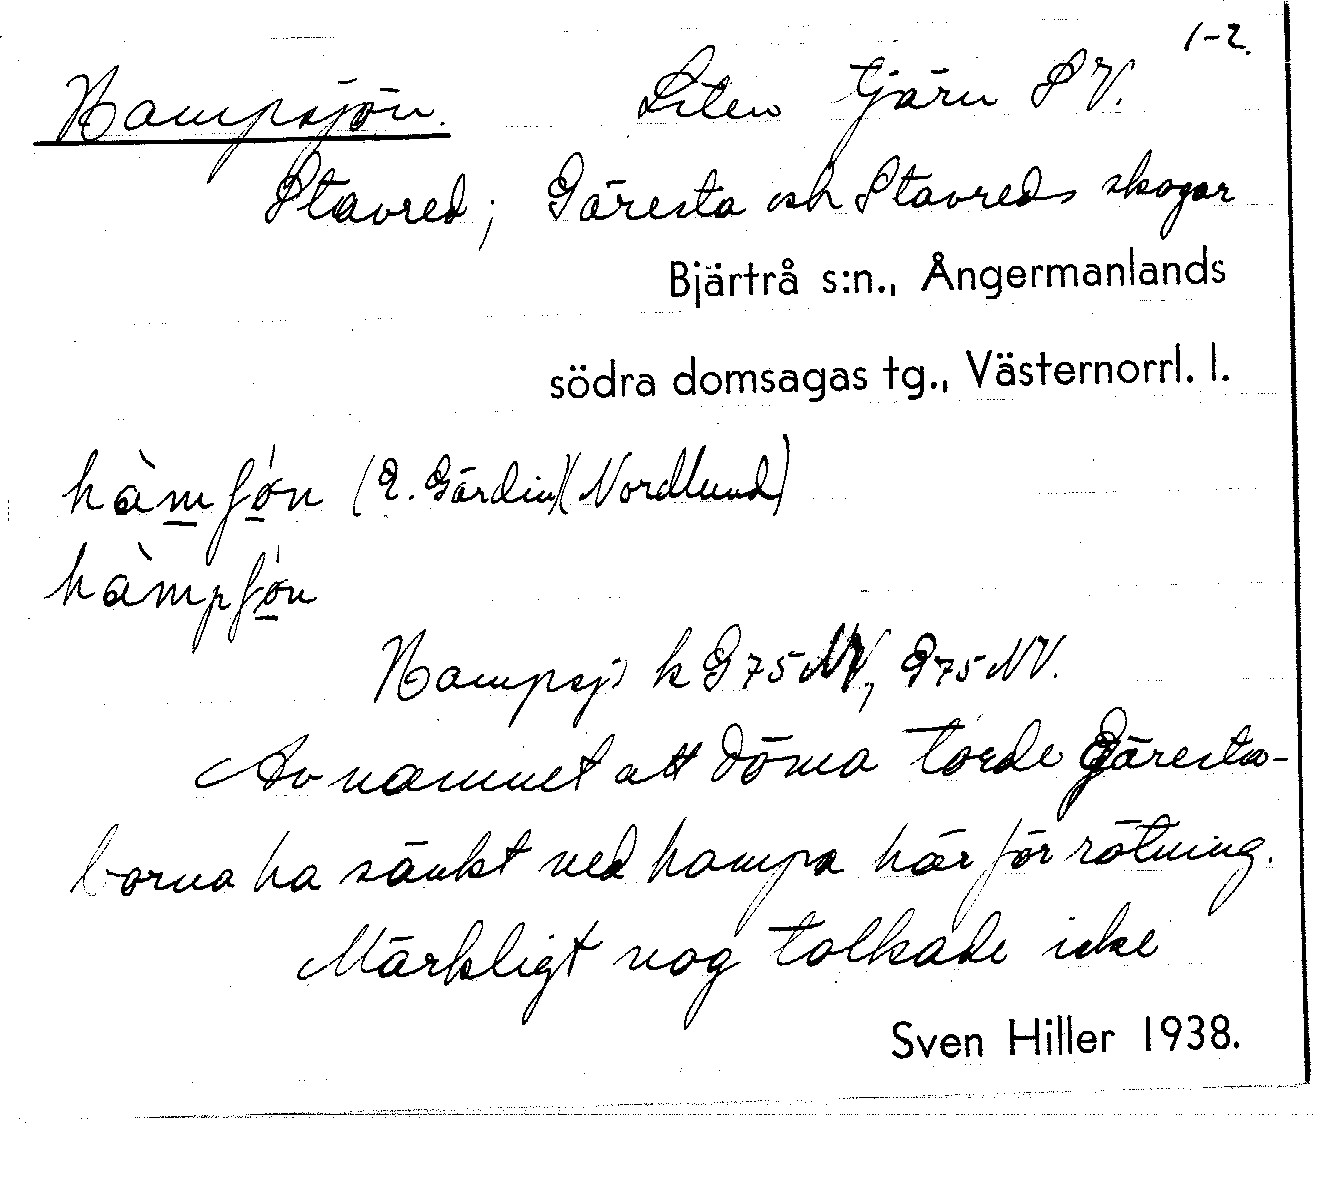 1-2.
Hampsjön. Liten tjärn S V.
Stavred; Gäresta och Stavreds skogar
Bjärtrå s:n., Ångermanlands
södra domsagas tg., Västernorrl. l.
hàmʃó̱n (E. Gärdin)(Nordlund)
hàmpʃó̱n
Hampsj) k G75NV, G75NV.
Av namnet att döma torde Gäresta-
borna ha sänkt ned hampa här för rötning.
Märkligt nog tolkade icke
Sven Hiller 1938.